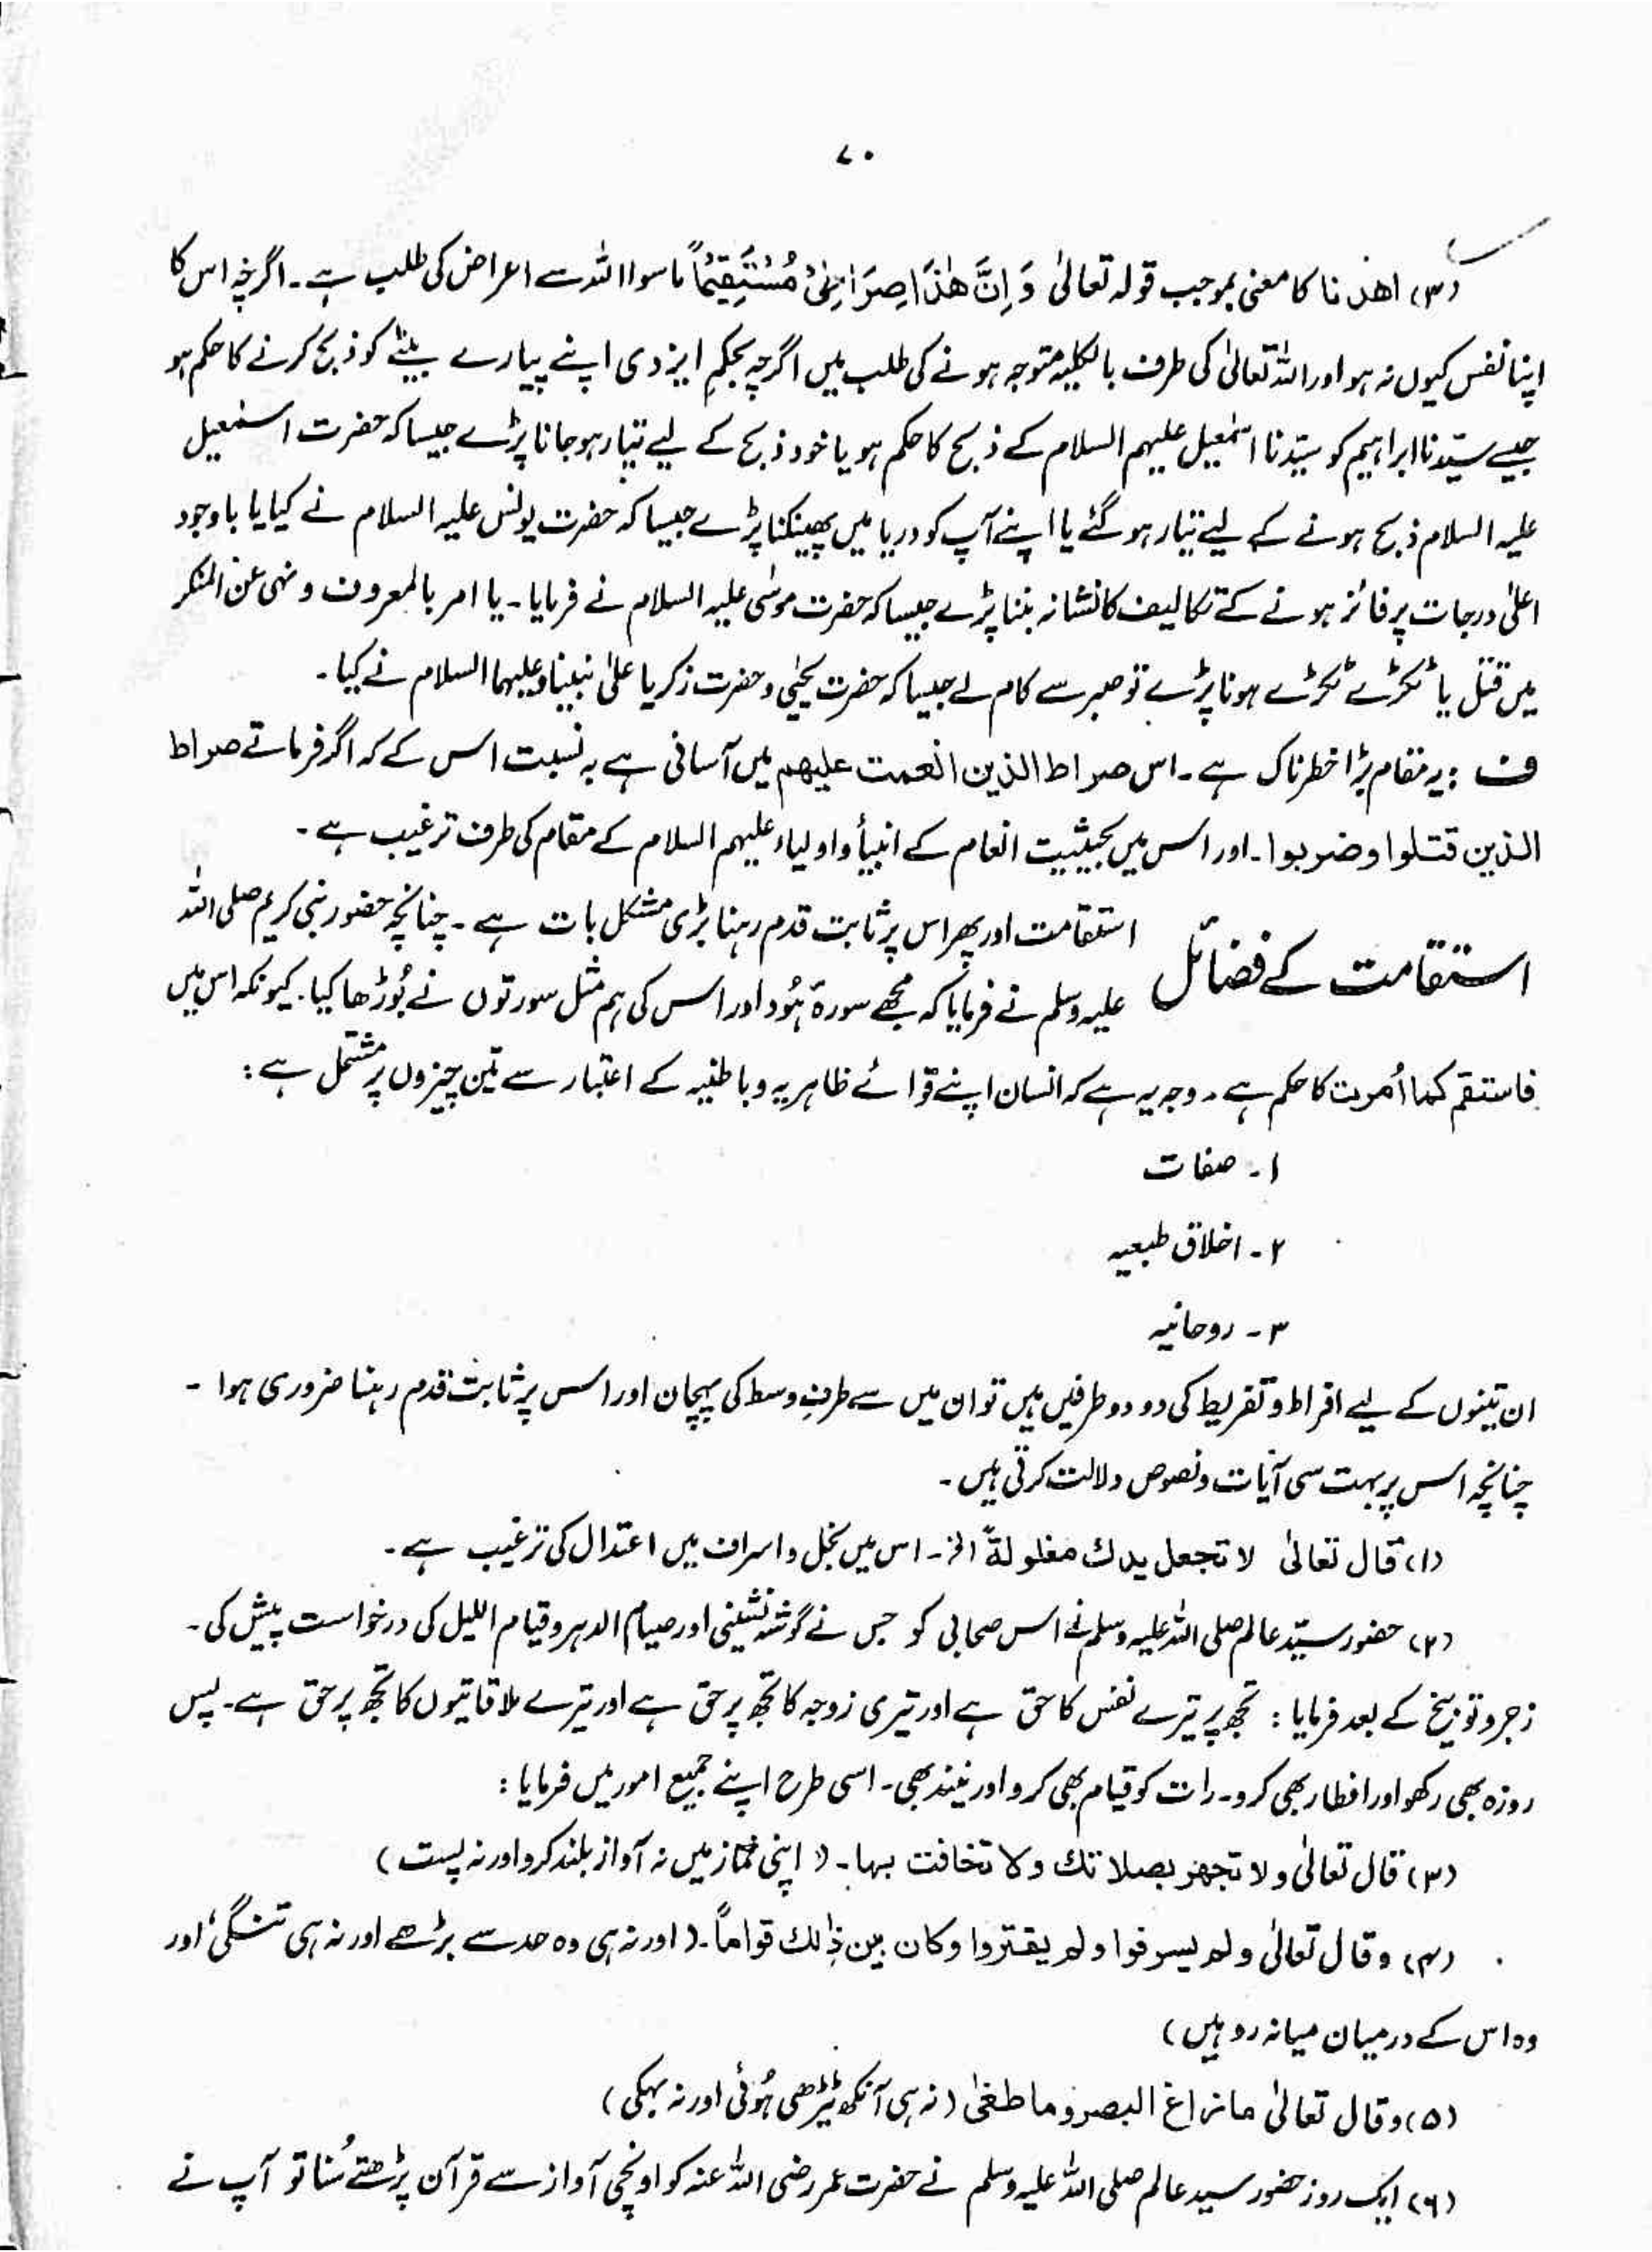 ۷۰
(۳) اھدنا کا معنی بموجب قولہ تعالیٰ وَاِنَّ هٰذَا صِرَاطِیْ مُسْتَقِیْمًا ماسوا اللہ سے اعراض کی طلب ہے۔ اگرچہ اس کا
اپنا نفس کیوں نہ ہو اور اللہ تعالیٰ کی طرف بالکلیہ متوجہ ہونے کی طلب میں اگرچہ بحکم ایزدی اپنے پیارے بیٹے کو ذبح کرنے کا حکم ہو
جیسے سیّدنا ابراہیم کو سیّدنا اسمٰعیل علیہم السلام کے ذبح کا حکم ہو یا خود ذبح کے لیے تیار ہو جانا پڑے جیسا کہ حضرت اسمٰعیل
علیہ السلام ذبح ہونے کے لیے تیار ہو گئے یا اپنے آپ کو دریا میں پھینکنا پڑے جیسا کہ حضرت یونس علیہ السلام نے کیا یا باوجود
اعلیٰ درجات پر فائز ہونے کے تکالیف کا نشانہ بننا پڑے جیسا کہ حضرت موسٰی علیہ السلام نے فرمایا۔ یا امر بالمعروف و نہی عن المنکر
میں قتل یا ٹکڑے ٹکڑے ہونا پڑے تو صبر سے کام لے جیسا کہ حضرت یحیٰی و حضرت زکریا علیٰ نبینا وعلیہما السلام نے کیا۔
ف : یہ مقام بڑا خطرناک ہے۔ اس صراط الذین انعمت علیھم میں آسانی ہے بہ نسبت اس کے کہ اگر فرماتے صراط
الذین قتلوا وضربوا۔ اور اس میں بحیثیت انعام کے انبیأ و اولیاء علیہم السلام کے مقام کی طرف ترغیب ہے۔
استقامت کے فضائل استقامت اور پھر اس پر ثابت قدم رہنا بڑی مشکل بات ہے۔ چنانچہ حضور نبی کریم صلی اللہ
علیہ وسلم نے فرمایا کہ مجھے سورۃ ہُود اور اس کی ہم مثل سورتوں نے بُوڑھا کیا۔ کیونکہ اس میں
فاستقم کما أمرت کا حکم ہے۔ وجہ یہ ہے کہ انسان اپنے قوائے ظاہریہ و باطنیہ کے اعتبار سے تین چیزوں پر مشتمل ہے :
۱۔ صفات
۲۔ اخلاق طبعیہ
۳۔ روحانیہ
ان تینوں کے لیے افراط و تفریط کی دو دو طرفیں ہیں تو ان میں سے طرفِ وسط کی پہچان اور اس پر ثابت قدم رہنا ضروری ہوا۔
چنانچہ اس پر بہت سی آیات و نصوص دلالت کرتی ہیں۔
(۱) قال تعالیٰ لا تجعل یدك مغلولةً الخ۔ اس میں بخل و اسراف میں اعتدال کی ترغیب ہے۔
(۲) حضور سیّد عالم صلی اللہ علیہ وسلم نے اس صحابی کو جس نے گوشہ نشینی اور صیام الدہر و قیام اللیل کی درخواست پیش کی۔
زجر و توبیخ کے بعد فرمایا : تجھ پر تیرے نفس کا حق ہے اور تیری زوجہ کا تجھ پر حق ہے اور تیرے ملاقاتیوں کا تجھ پر حق ہے۔ پس
روزہ بھی رکھو اور افطار بھی کرو۔ رات کو قیام بھی کرو اور نیند بھی۔ اسی طرح اپنے جمیع امور میں فرمایا :
(۳) قال تعالیٰ ولا تجھر بصلاتك ولا تخافت بہا۔ (اپنی نماز میں نہ آواز بلند کرو اور نہ پست)
(۴) وقال تعالیٰ ولم یسرفوا ولم یقتروا وکان بین ذٰلك قواماً۔ (اور نہ ہی وہ حد سے بڑھے اور نہ ہی تنگی اور
وہ اس کے درمیان میانہ رو ہیں)
(۵) وقال تعالیٰ مازاغ البصر وما طغیٰ (نہ ہی آنکھ ٹیڑھی ہُوئی اور نہ بہکی)
(۶) ایک روز حضور سید عالم صلی اللہ علیہ وسلم نے حضرت عمر رضی اللہ عنہ کو اونچی آواز سے قرآن پڑھتے سُنا تو آپ نے